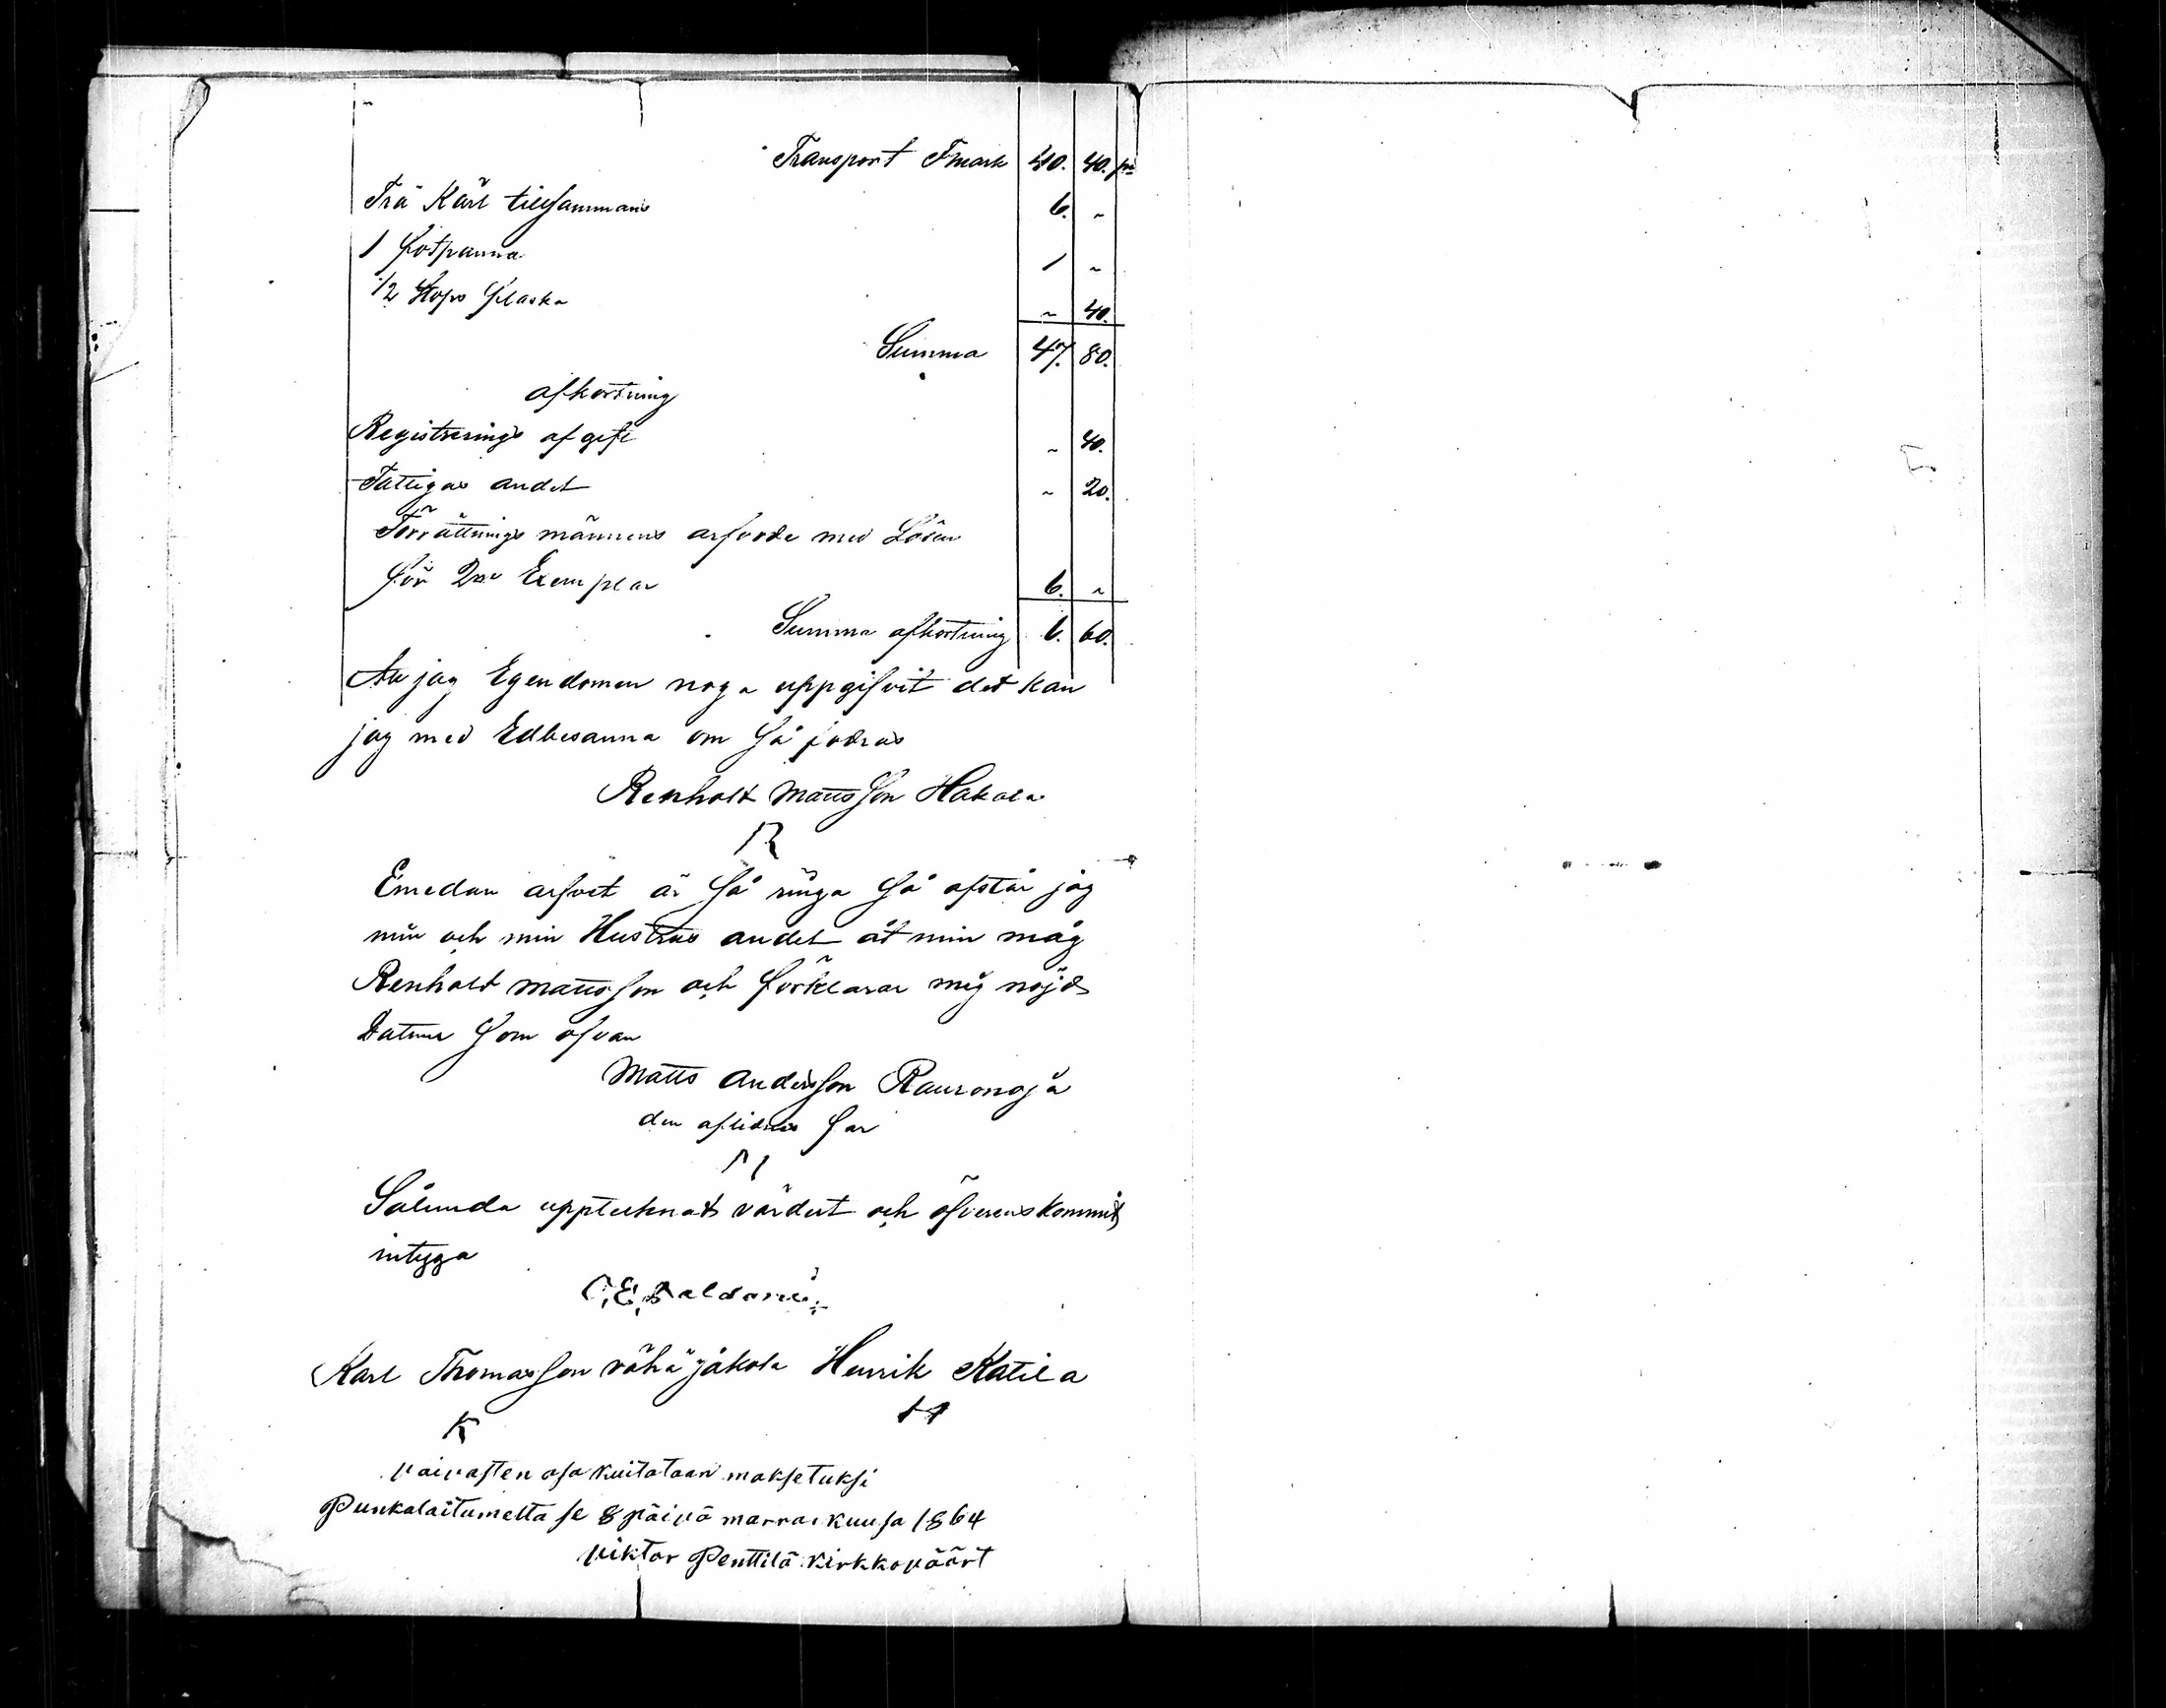 Transport Fmark 40. 40. pi
Trä Kärl tillsammans 6. ~
1 fotpanna 1 ~
1/2 Stops flaska ~ 40.
Summa 47. 80.
afkortning
Registrerings afgift ~ 40.
Fattigas andel ~ 20.
Förrättnings männens arfvode med Lösen
för 2ne Exemplar 6. ~
Summa afkortning 6. 60.
At jag Egendomen noga uppgifvit det kan
jag med Ed besanna om så fodras
Renholt Mattsson Hakala
R
Emedan arfvet är så ringa så afstår jag
min och min Hustrus andel åt min måg
Renholt Mattsson och förklarar mig nöjd
Datum som ofvan
Matts Andersson Rauronoja
den aflidnes far
M
Sålunda upptecknat värdert och öfverenskommit
intyga
C. E.
Karl Thomasson vähäjakola Henrik Katila
K H
vaivasten osa kuitataan maksetuksi
Punkalaitumella se 8 päivä marraskuusa 1864
viktor Penttilä kirkkoväärt